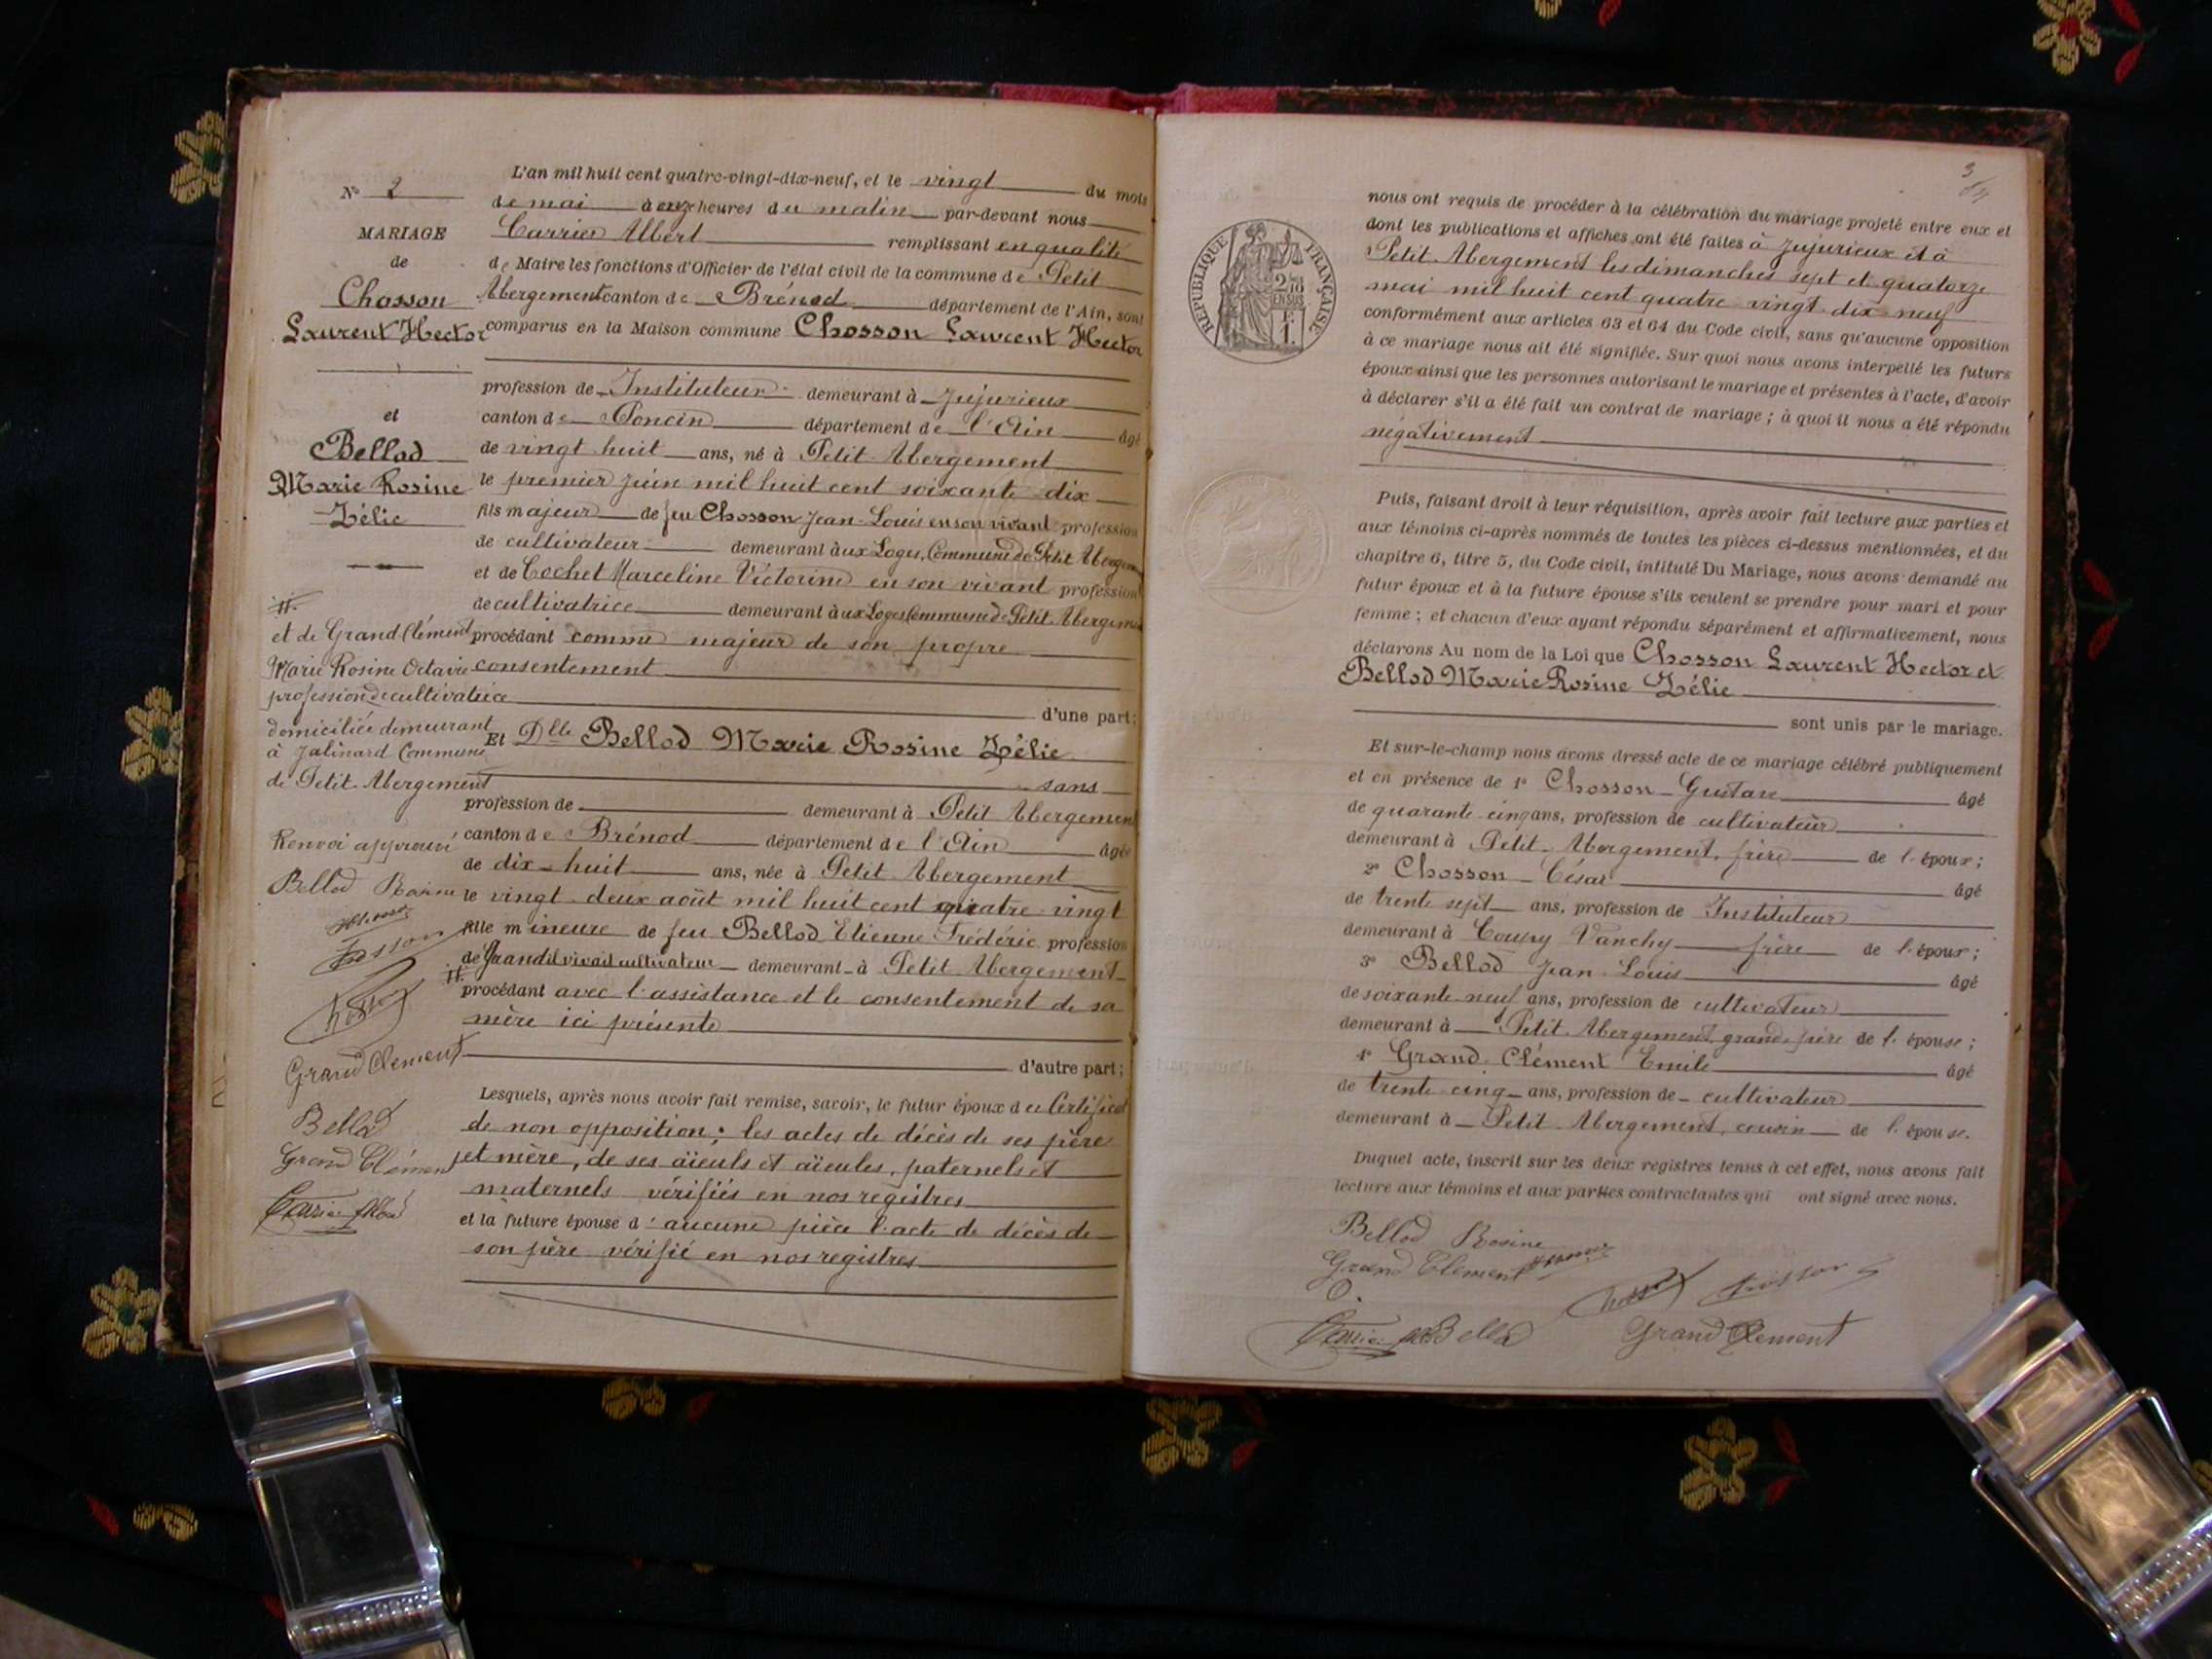 N° 2
MARIAGE
de
Chosson
Laurent Hector
et
Bellod
Marie Rosine
Zélie
#.
et de Grand Clément
Marie Rosine Octavie
profession de cultivatrice
domiciliée demeurant
à Jalinard Commune
de Petit Abergement
Renvoi approuvé
Bellod Rosine
Grand Clement
Bellod
Grand Clément
Carrier Albert
L'an mil huit cent quatre-vingt-dix-neuf, et le vingt du mois
de mai à onze heures du matin par-devant nous
Carrier Albert remplissant en qualité
de Maire les fonctions d'Officier de l'état civil de la commune de Petit
Abergement canton de Brénod département de l'Ain, sont
comparus en la Maison commune Chosson Laurent Hector
profession de Instituteur demeurant à Jujurieux
canton de Poncin département de l'Ain âgé
de vingt huit ans, né à Petit Abergement
le premier juin mil huit cent soixante dix
fils majeur de feu Chosson Jean-Louis en son vivant profession
de cultivateur demeurant aux Loges, Commune de Petit Abergement
et de Cochet Marceline Victorine en son vivant profession
de cultivatrice demeurant aux Loges Commune de Petit Abergement
procédant comme majeur de son propre
consentement
d'une part;
Et Dlle Bellod Marie Rosine Zélie
sans
profession de demeurant à Petit Abergement
canton de Brénod département de l'Ain âgée
de dix-huit ans, née à Petit Abergement
le vingt-deux août mil huit cent quatre-vingt
fille mineure de feu Bellod Etienne Frédéric profession
de quand il vivait cultivateur demeurant à Petit Abergement
#. procédant avec l'assistance et le consentement de sa
mère ici présente
d'autre part;
Lesquels, après nous avoir fait remise, savoir, le futur époux du Certificat
de non opposition; les actes de décès de ses père
et mère, de ses aïeuls et aïeules, paternels et
maternels vérifiés en nos registres
et la future épouse d'aucune pièce l'acte de décès de
son père vérifié en nos registres
3
REPUBLIQUE FRANÇAISE
2/10
EN SUS
1F.
nous ont requis de procéder à la célébration du mariage projeté entre eux et
dont les publications et affiches ont été faites à Jujurieux et à
Petit Abergement les dimanches sept et quatorze
mai mil huit cent quatre vingt dix neuf
conformément aux articles 63 et 64 du Code civil, sans qu'aucune opposition
à ce mariage nous ait été signifiée. Sur quoi nous avons interpellé les futurs
époux ainsi que les personnes autorisant le mariage et présentes à l'acte, d'avoir
à déclarer s'il a été fait un contrat de mariage; à quoi il nous a été répondu
négativement
Puis, faisant droit à leur réquisition, après avoir fait lecture aux parties et
aux témoins ci-après nommés de toutes les pièces ci-dessus mentionnées, et du
chapitre 6, titre 5, du Code civil, intitulé Du Mariage, nous avons demandé au
futur époux et à la future épouse s'ils veulent se prendre pour mari et pour
femme; et chacun d'eux ayant répondu séparément et affirmativement, nous
déclarons Au nom de la Loi que Chosson Laurent Hector et
Bellod Marie Rosine Zélie
sont unis par le mariage.
Et sur-le-champ nous avons dressé acte de ce mariage célébré publiquement
et en présence de 1° Chosson Gustave âgé
de quarante cinq ans, profession de cultivateur
demeurant à Petit Abergement, frère de l'époux;
2° Chosson César âgé
de trente sept ans, profession de Instituteur
demeurant à Coupy Vanchy frère de l'époux;
3° Bellod Jean Louis âgé
de soixante neuf ans, profession de cultivateur
demeurant à Petit Abergement, grand-père de l'épouse;
4° Grand Clément Emile âgé
de trente cinq ans, profession de cultivateur
demeurant à Petit Abergement, cousin de l'épouse.
Duquel acte, inscrit sur les deux registres tenus à cet effet, nous avons fait
lecture aux témoins et aux parties contractantes qui ont signé avec nous.
Bellod Rosine
Grand Clement
O.
Carrier Bellod
Grand Clement